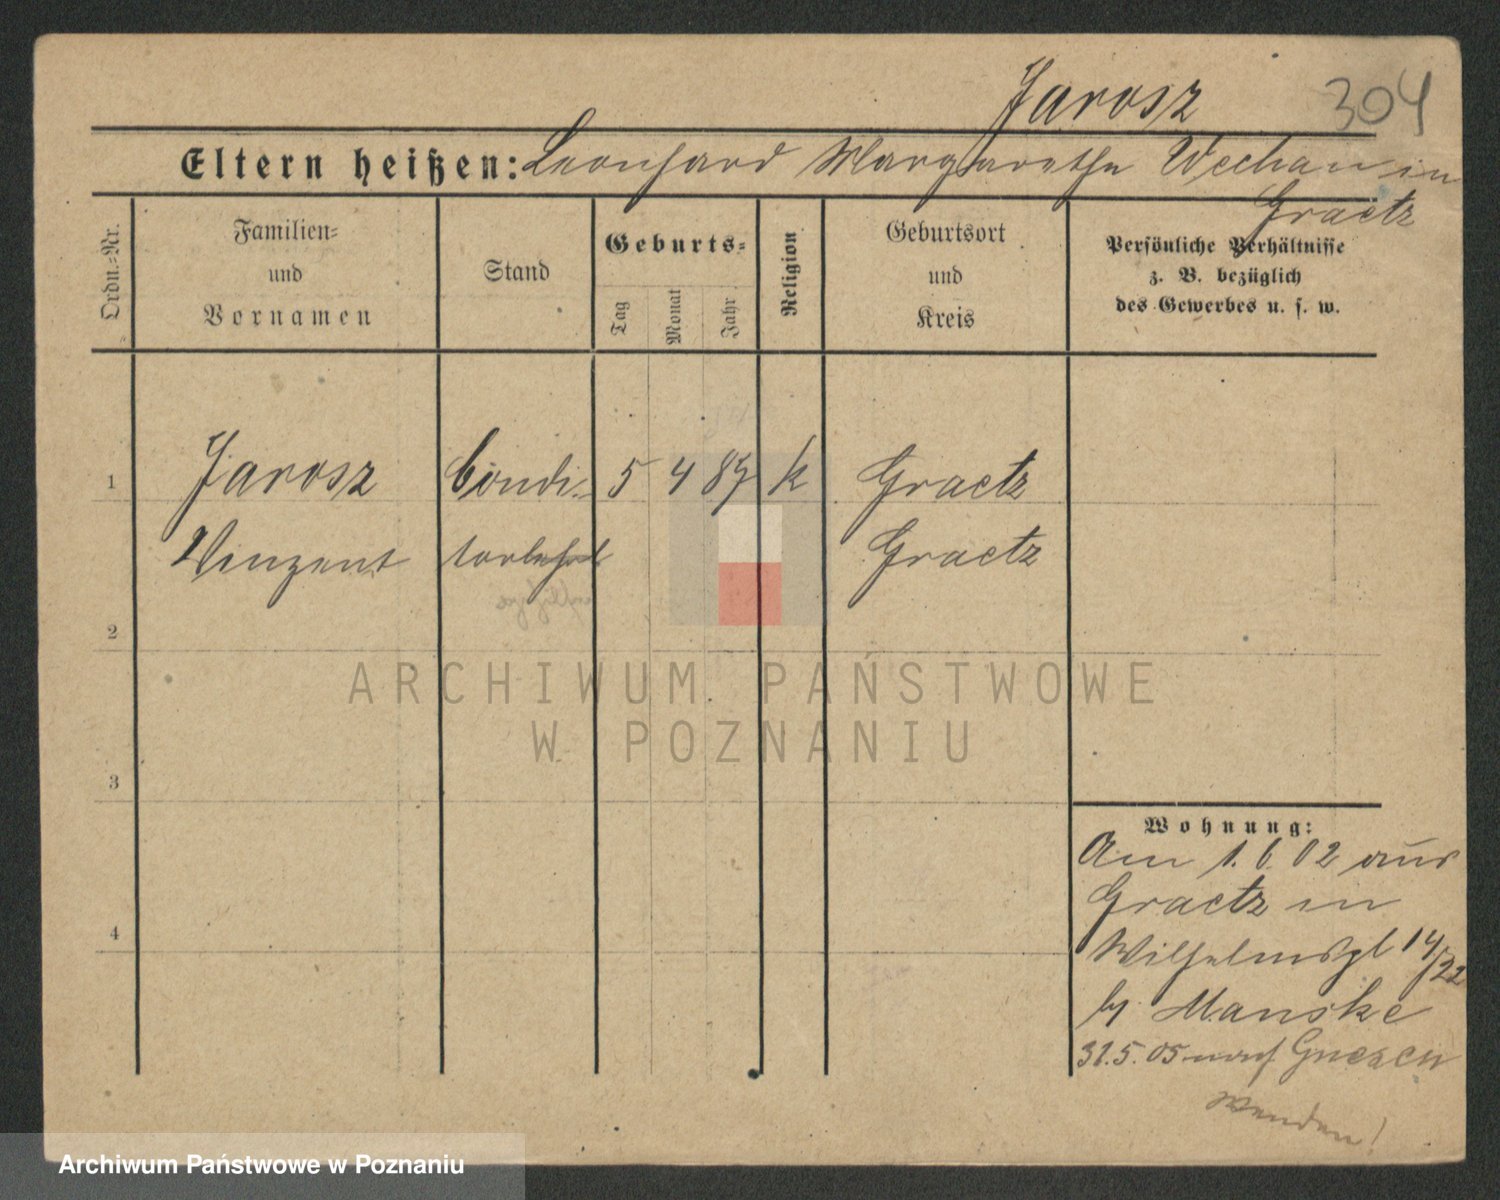 Jarosz 304
Eltern heißen: Leonhard Margarethe Wechan in
Graetz
Ordn.-Nr.
Familien-
und
Vornamen
Stand
Geburts-
Tag
Monat
Jahr
Religion
Geburtsort
und
Kreis
Persönliche Verhältnisse
z. B. bezüglich
des Gewerbes u. s. w.
1 Jarosz Condi- 5 4 87 k Graetz
Vinzent torlehrl Graetz
2
3
4
Wohnung:
Am 1.6.02 aus
Graetz in
Wilhelmspl 14/22
by Manske
31.5.05 nach Gnesen
Wenden!
ARCHIWUM PAŃSTWOWE
W POZNANIU
Archiwum Państwowe w Poznaniu